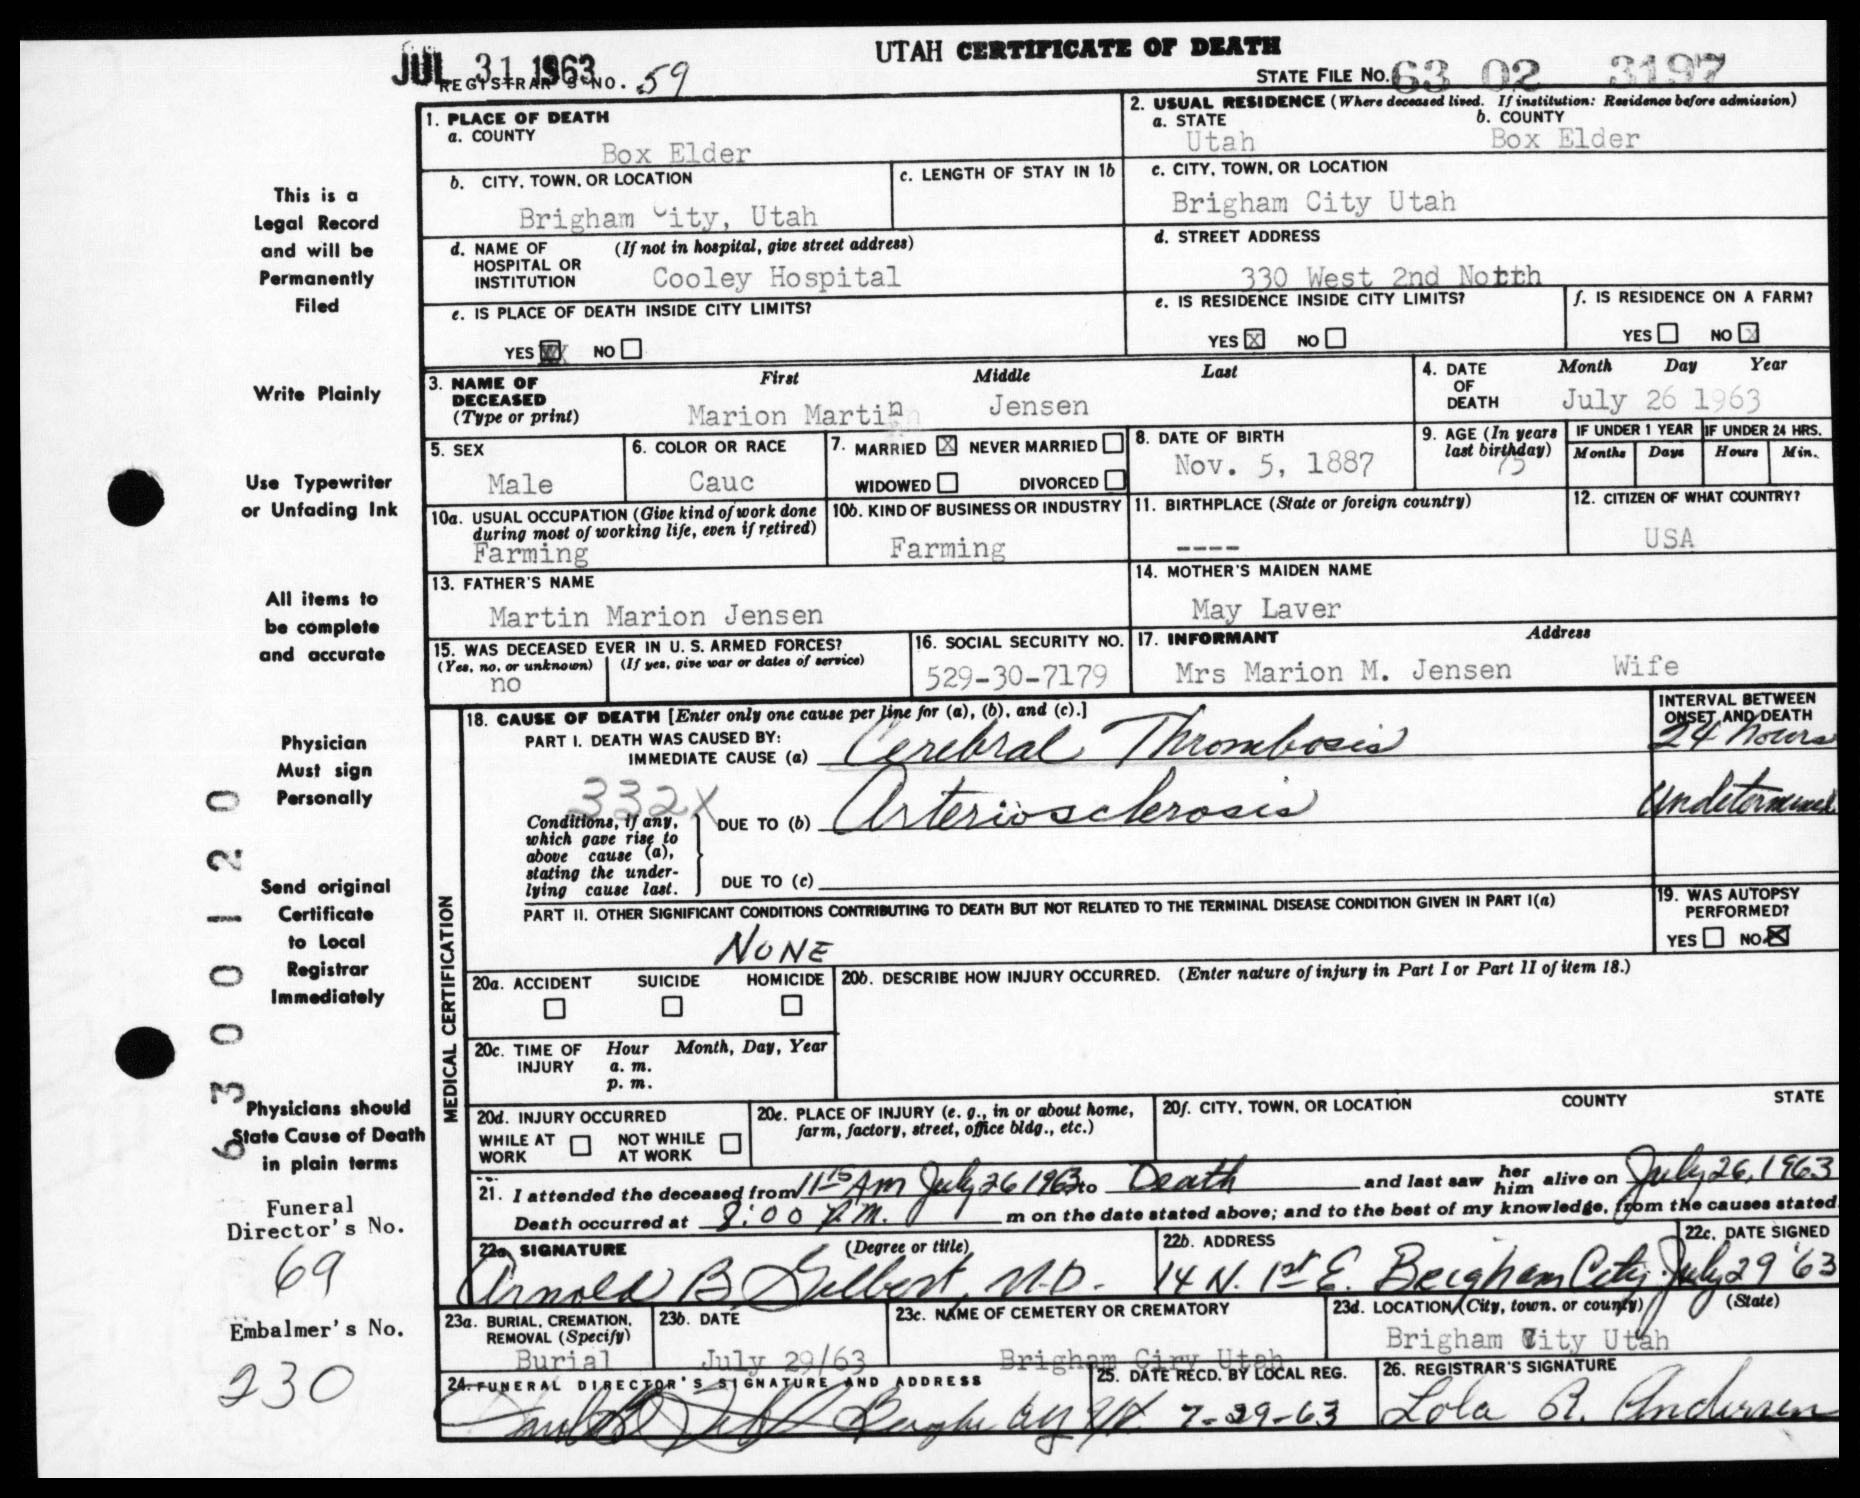 UTAH CERTIFICATE OF DEATH
JUL 31 1963
REGISTRAR'S NO. 59
STATE FILE NO. 63 02 3197
1. PLACE OF DEATH
a. COUNTY
Box Elder
2. USUAL RESIDENCE (Where deceased lived. If institution: Residence before admission)
a. STATE
Utah
b. COUNTY
Box Elder
b. CITY, TOWN, OR LOCATION
Brigham City, Utah
c. LENGTH OF STAY IN 1b
c. CITY, TOWN, OR LOCATION
Brigham City Utah
d. NAME OF HOSPITAL OR INSTITUTION
(If not in hospital, give street address)
Cooley Hospital
d. STREET ADDRESS
330 West 2nd North
e. IS PLACE OF DEATH INSIDE CITY LIMITS?
YES X NO
e. IS RESIDENCE INSIDE CITY LIMITS?
YES X NO
f. IS RESIDENCE ON A FARM?
YES NO X
3. NAME OF DECEASED
(Type or print)
First Middle Last
Marion Martin Jensen
4. DATE OF DEATH
Month Day Year
July 26 1963
5. SEX
Male
6. COLOR OR RACE
Cauc
7. MARRIED X NEVER MARRIED
WIDOWED DIVORCED
8. DATE OF BIRTH
Nov. 5, 1887
9. AGE (In years last birthday)
75
IF UNDER 1 YEAR
Months Days
IF UNDER 24 HRS.
Hours Min.
10a. USUAL OCCUPATION (Give kind of work done during most of working life, even if retired)
Farming
10b. KIND OF BUSINESS OR INDUSTRY
Farming
11. BIRTHPLACE (State or foreign country)
----
12. CITIZEN OF WHAT COUNTRY?
USA
13. FATHER'S NAME
Martin Marion Jensen
14. MOTHER'S MAIDEN NAME
May Laver
15. WAS DECEASED EVER IN U. S. ARMED FORCES?
(Yes, no, or unknown) (If yes, give war or dates of service)
no
16. SOCIAL SECURITY NO.
529-30-7179
17. INFORMANT Address
Mrs Marion M. Jensen Wife
MEDICAL CERTIFICATION
18. CAUSE OF DEATH [Enter only one cause per line for (a), (b), and (c).]
PART I. DEATH WAS CAUSED BY:
IMMEDIATE CAUSE (a) Cerebral Thrombosis
INTERVAL BETWEEN ONSET AND DEATH
24 hours
332X
Conditions, if any, which gave rise to above cause (a), stating the underlying cause last.
DUE TO (b) Arteriosclerosis
Undetermined
DUE TO (c)
PART II. OTHER SIGNIFICANT CONDITIONS CONTRIBUTING TO DEATH BUT NOT RELATED TO THE TERMINAL DISEASE CONDITION GIVEN IN PART I(a)
NONE
19. WAS AUTOPSY PERFORMED?
YES NO X
20a. ACCIDENT SUICIDE HOMICIDE
20b. DESCRIBE HOW INJURY OCCURRED. (Enter nature of injury in Part I or Part II of item 18.)
20c. TIME OF INJURY
Hour Month, Day, Year
a. m.
p. m.
20d. INJURY OCCURRED
WHILE AT WORK NOT WHILE AT WORK
20e. PLACE OF INJURY (e. g., in or about home, farm, factory, street, office bldg., etc.)
20f. CITY, TOWN, OR LOCATION COUNTY STATE
21. I attended the deceased from 11 15 Am July 26 1963 to Death and last saw her him alive on July 26, 1963
Death occurred at 8:00 P.M. m on the date stated above; and to the best of my knowledge, from the causes stated.
22a. SIGNATURE (Degree or title)
Arnold B Gilbert, M.D.
22b. ADDRESS
14 N. 1st E. Brigham City
22c. DATE SIGNED
July 29 '63
23a. BURIAL, CREMATION, REMOVAL (Specify)
Burial
23b. DATE
July 29/63
23c. NAME OF CEMETERY OR CREMATORY
Brigham Ciry Utah
23d. LOCATION (City, town, or county) (State)
Brigham City Utah
24. FUNERAL DIRECTOR'S SIGNATURE AND ADDRESS
25. DATE RECD. BY LOCAL REG.
7-29-63
26. REGISTRAR'S SIGNATURE
Lola R. Andersen
This is a
Legal Record
and will be
Permanently
Filed
Write Plainly
Use Typewriter
or Unfading Ink
All items to
be complete
and accurate
Physician
Must sign
Personally
Send original
Certificate
to Local
Registrar
Immediately
Physicians should
State Cause of Death
in plain terms
Funeral
Director's No.
69
Embalmer's No.
230
6 3 0 0 1 2 0